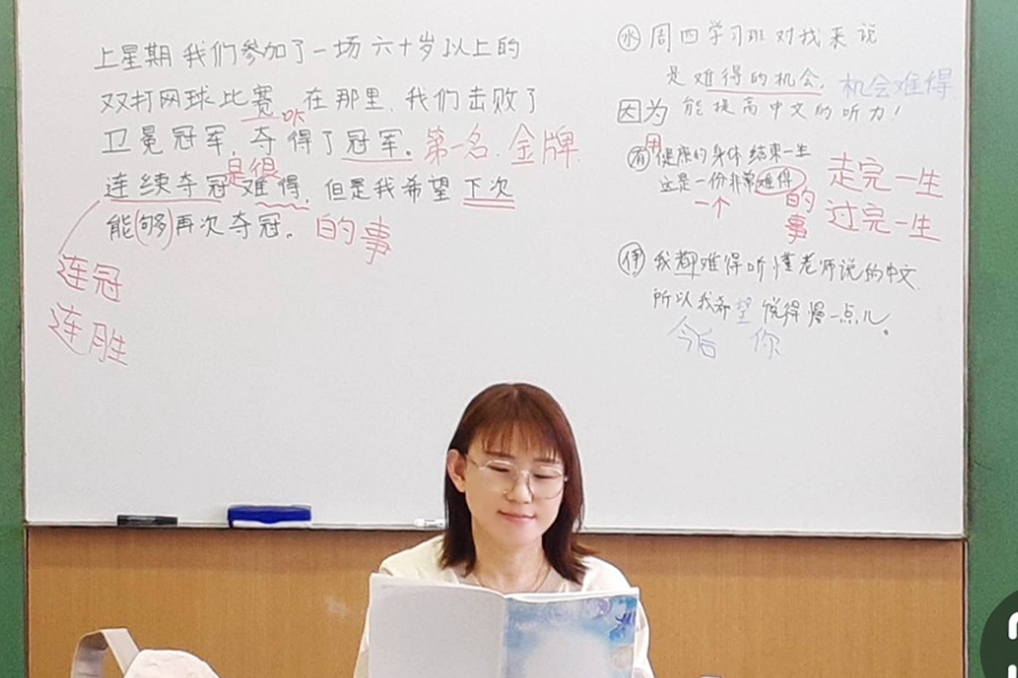 上星期我们参加了一场六十岁以上的
双打网球比赛,在那里,我们击败了
卫冕冠军,夺得了冠军。第一名.金牌.
连续夺冠是很难得,但是我希望下次
能(够)再次夺冠。的事
连冠
连胜
㊌周四学习班对我来说
是难得的机会,机会难得
因为能提高中文的听力!
用
㊒健康的身体结束一生 走完一生
这是一份非常难得的事 过完一生
一个
我都难得听懂老师说的中文
所以我希望说得慢一点儿。
今后 你